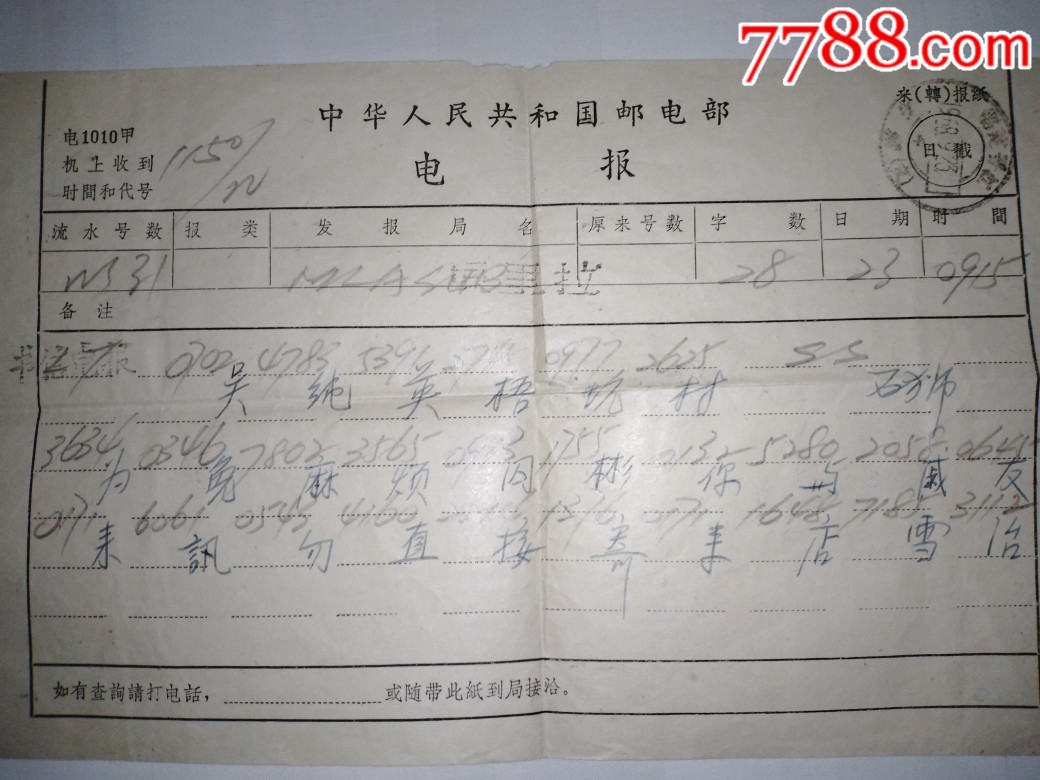 7788.com
来(轉)报紙
中华人民共和国邮电部
电1010甲
机上收到
时間和代号
1150/
电 报
日戳
流水号数 报类 发报局名 原来号数 字数 日期 时間
31 MLA 28 23 0915
备注
0702 4783 5391 0977 2625 SS
吴 纯 英 梧 坑 村 石狮
3634 0346 7802 3565 1755 0132 5280 2058 0645
为 免 麻 烦 同 彬 你 与 戚 友
0171 6061 0545 4160 1316 0171 1648 7185 3112
来 訊 勿 直 接 寄 来 店 雪 冶
如有查詢請打电話， 或随带此紙到局接洽。